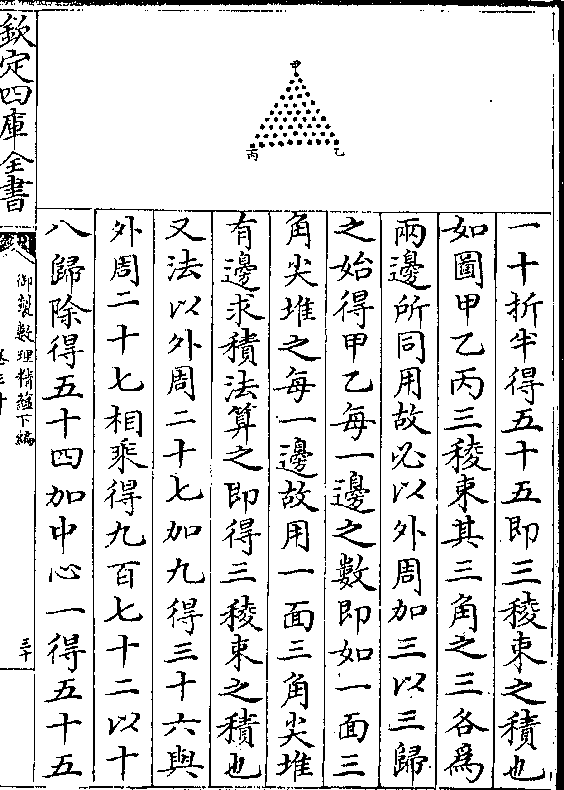 一十折半得五十五即三稜束之積也
如圖甲乙丙三稜束其三角之三各為
兩邊所同用故必以外周加三以三歸
之始得甲乙每一邊之數即如一面三
角尖堆之每一邊故用一面三角尖堆
有邊求積法算之即得三稜束之積也
又法以外周二十七加九得三十六與
外周二十七相乘得九百七十二以十
八歸除得五十四加中心一得五十五
甲
丙
乙
欽定四庫全書
御製數理精蘊下編
卷三十
三十